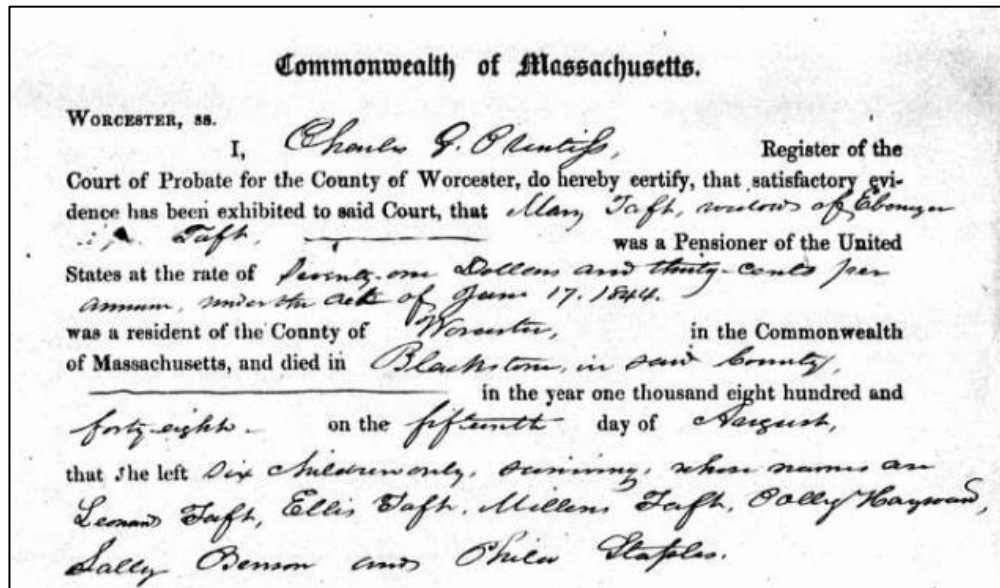 Commonwealth of Massachusetts.
WORCESTER, ss.
I, Charles G. Prentiss, Register of the
Court of Probate for the County of Worcester, do hereby certify, that satisfactory evi-
dence has been exhibited to said Court, that Mary Taft, widow of Ebenezer
Taft, was a Pensioner of the United
States at the rate of Seventy-one Dollars and thirty-cents per
annum, under the act of June 17. 1844.
was a resident of the County of Worcester, in the Commonwealth
of Massachusetts, and died in Blackstone, in said County,
in the year one thousand eight hundred and
forty-eight on the fifteenth day of August,
that she left six children only, surviving, whose names are
Leonard Taft, Ellis Taft, Millens Taft, Polly Hayward,
Sally Benson and Phila Staples.